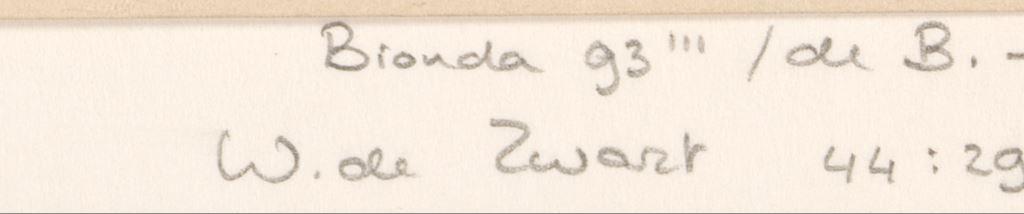 Bionda 93''' / de B. -
W. de Zwart 44:29